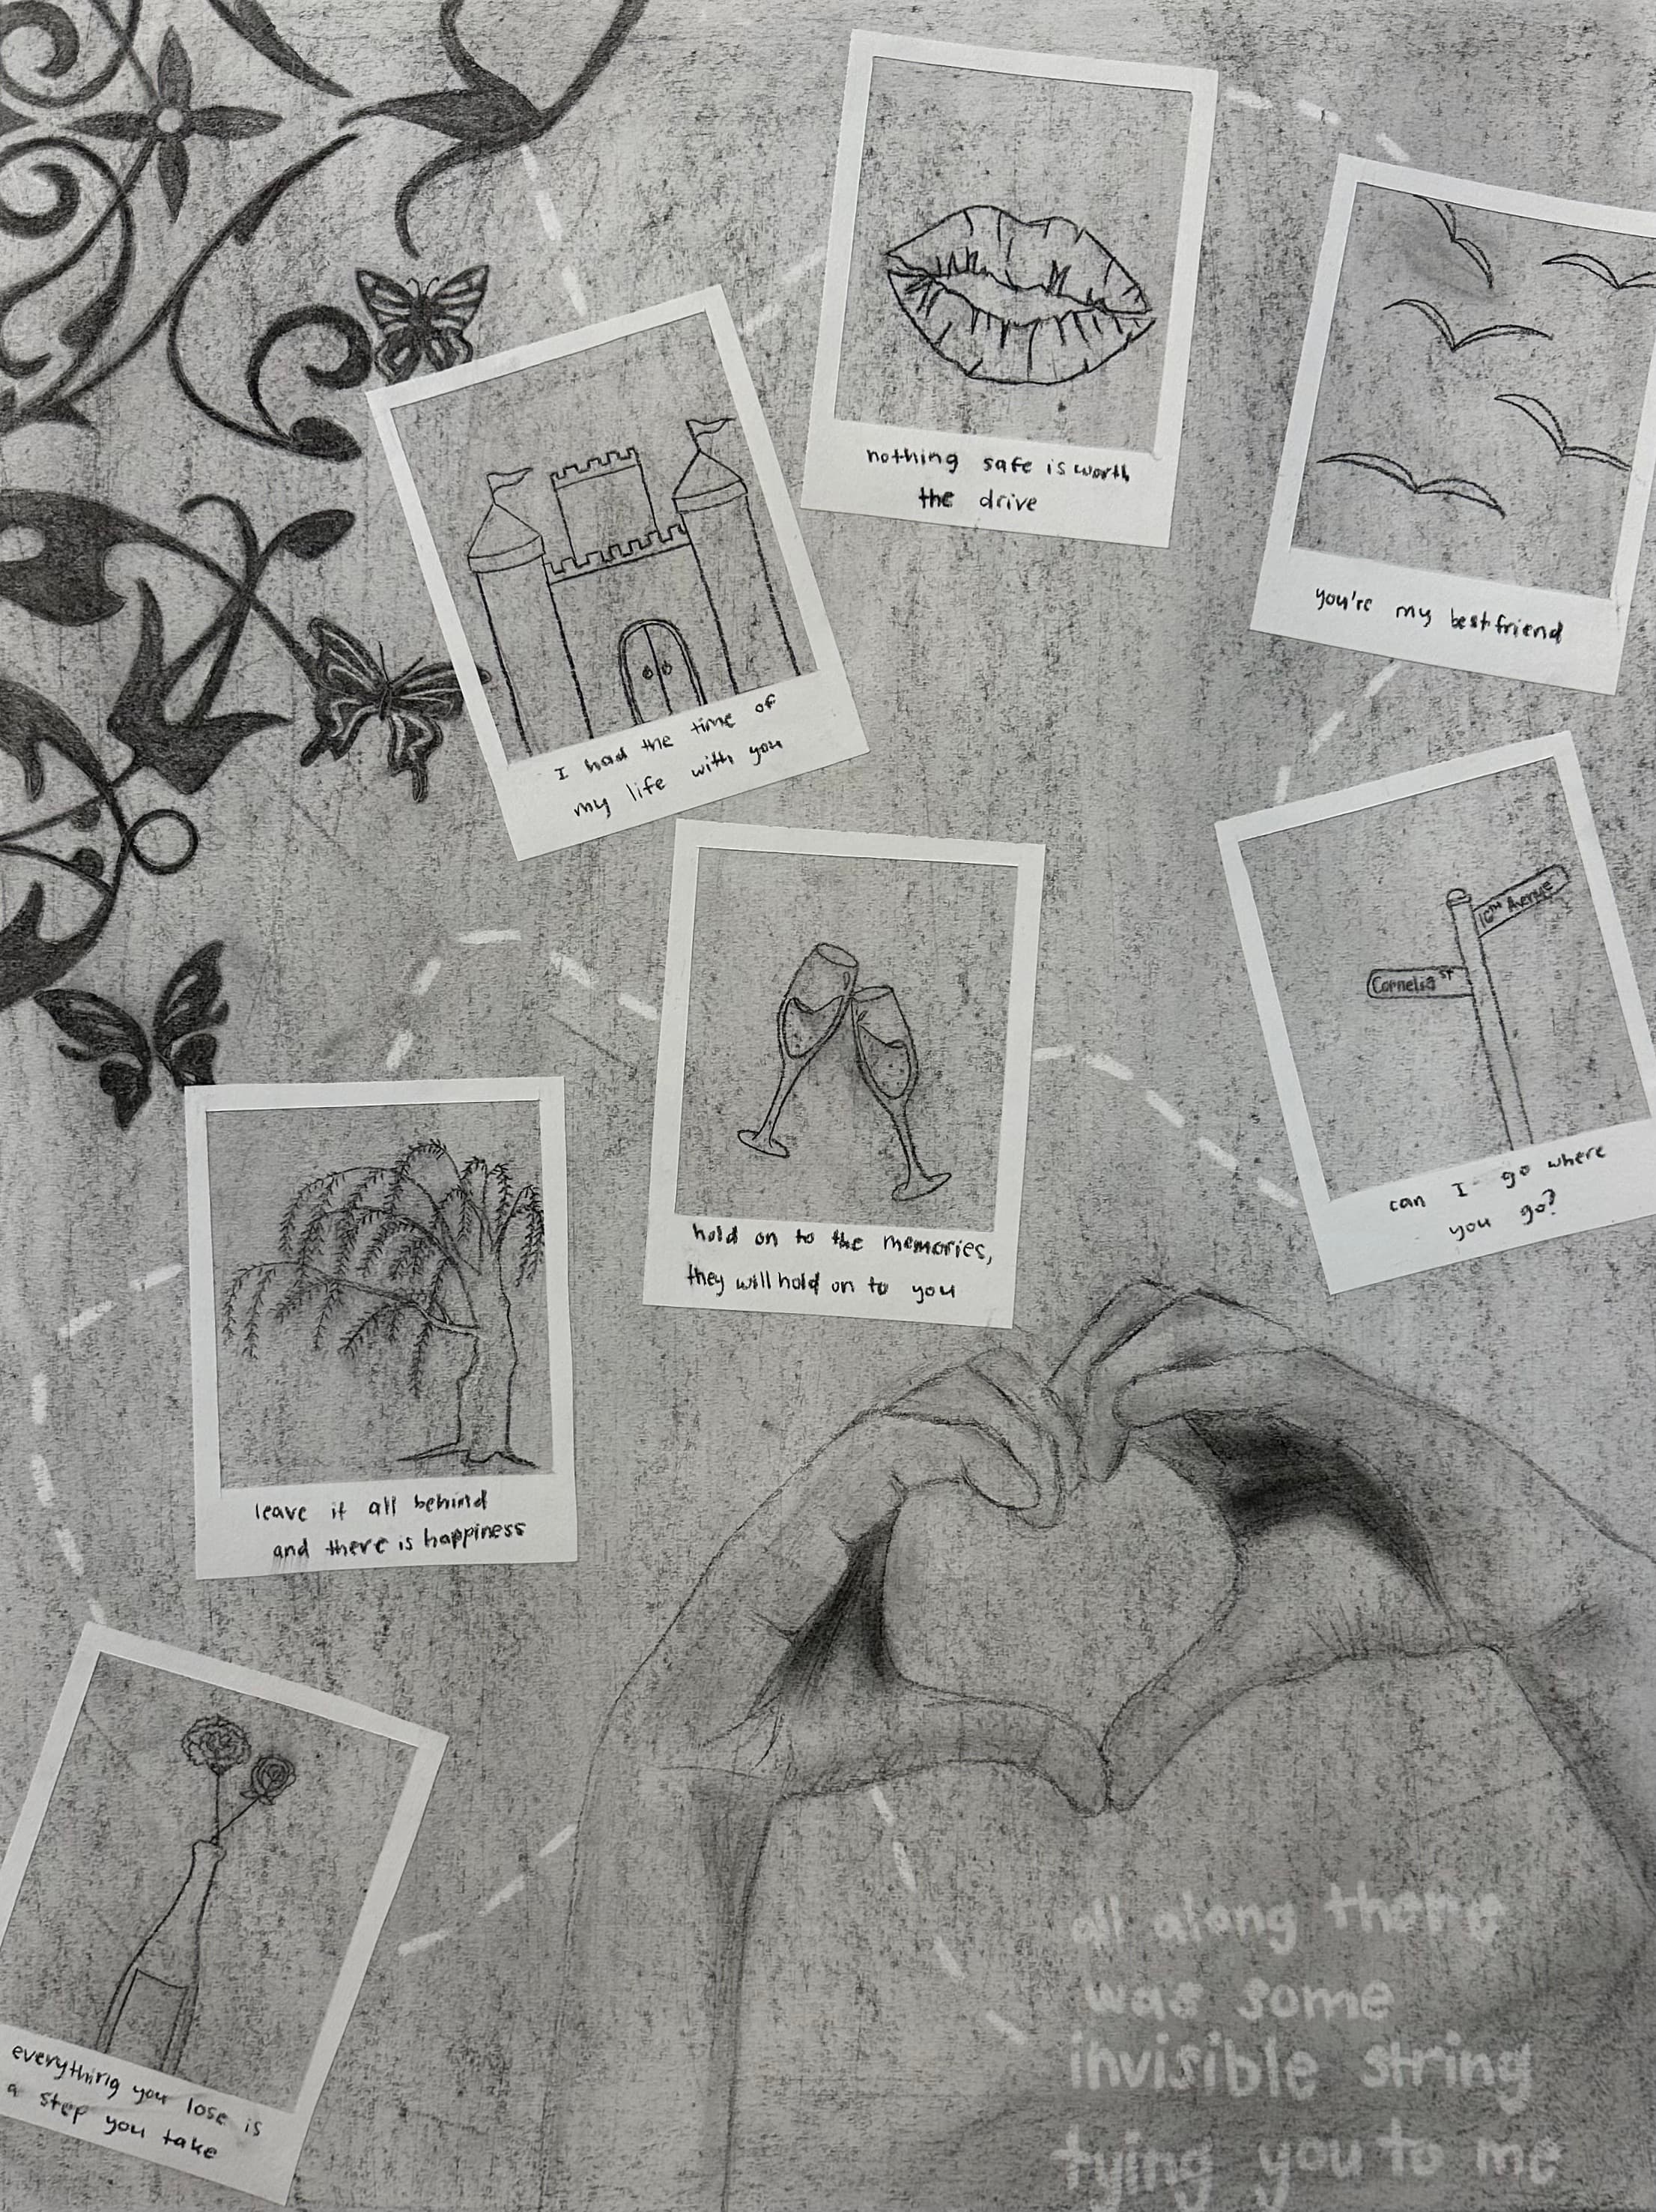 nothing safe is worth
the drive
you're my best friend
I had the time of
my life with you
10TH Avenue
Cornelia ST
can I go where
you go?
hold on to the memories,
they will hold on to you
leave it all behind
and there is happiness
everything you lose is
a step you take
all along there
was some
invisible string
tying you to me